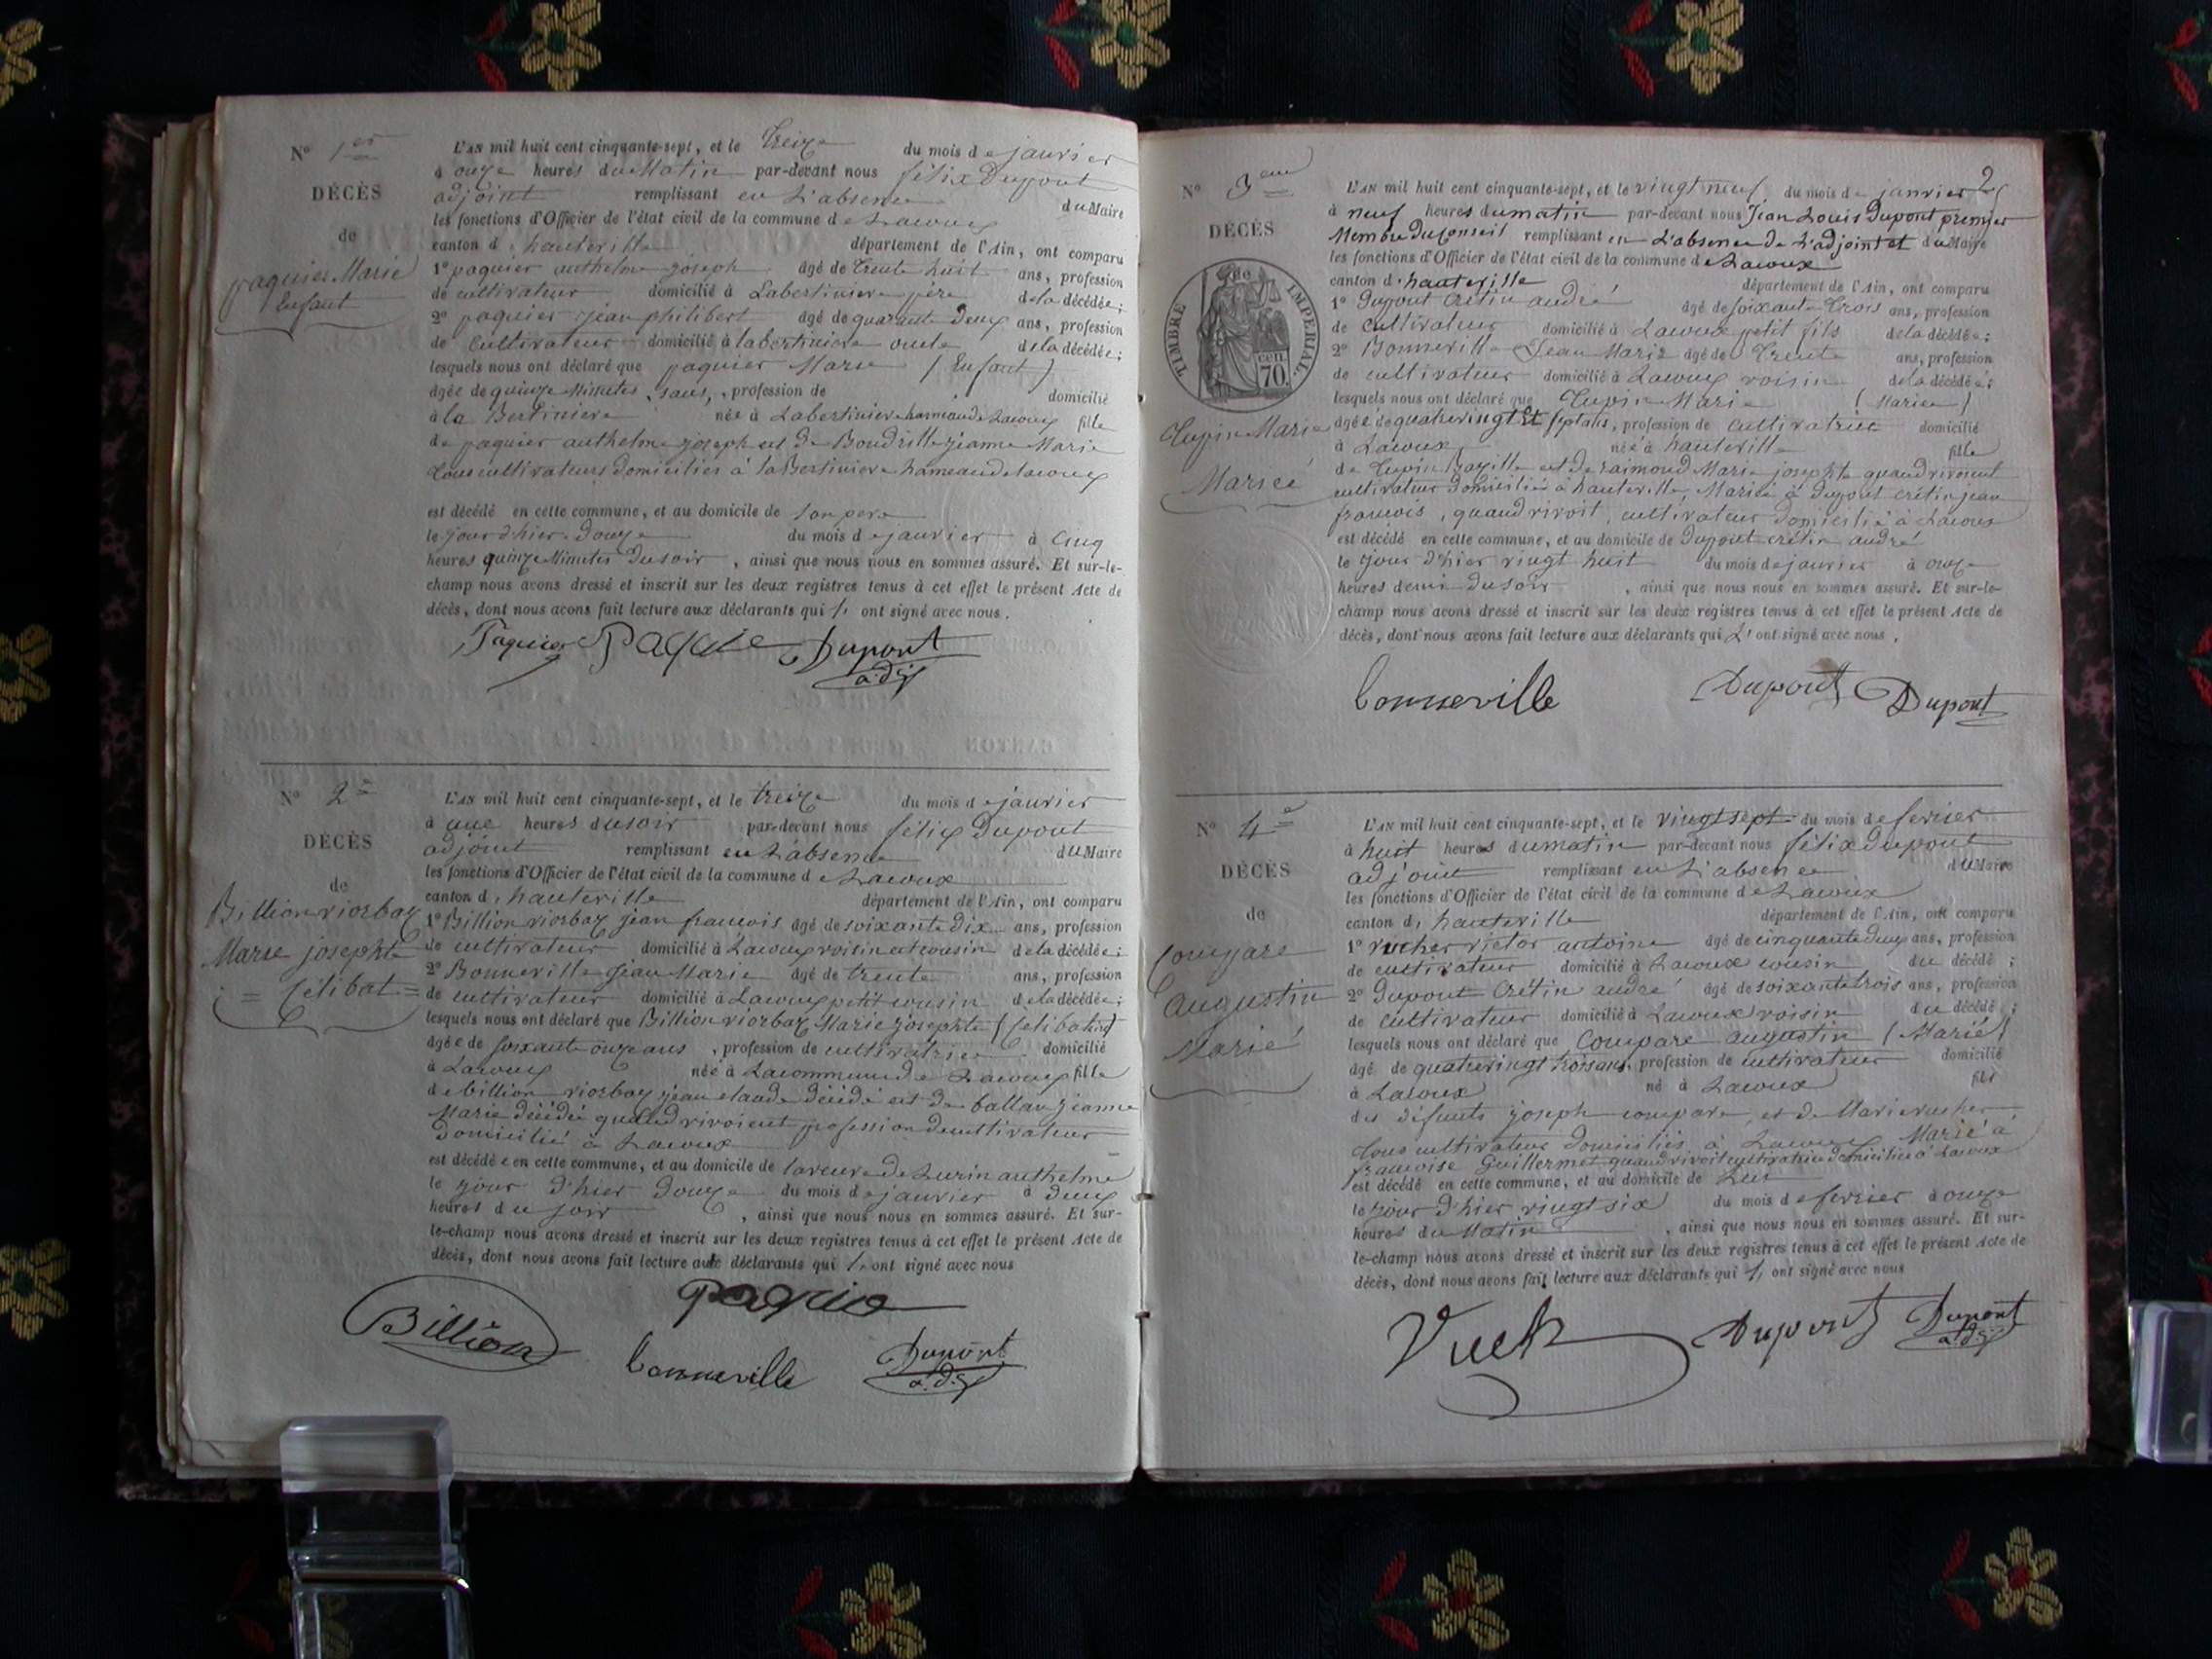 N° 1er
DÉCÈS
de
paquier Marie
Enfant
L'AN mil huit cent cinquante-sept, et le treize du mois de janvier
à onze heures du Matin par-devant nous félix Dupont
adjoint remplissant en L'absence du Maire
les fonctions d'Officier de l'état civil de la commune de Lacoux
canton d'hauteville département de l'Ain, ont comparu
1° paquier anthelme joseph âgé de trente huit ans, profession
de cultivateur domicilié à Labertiniere père de la décédée;
2° paquier jean philibert âgé de quarante Deux ans, profession
de Cultivateur domicilié à labertiniere oncle de la décédée;
lesquels nous ont déclaré que paquier Marie (Enfant)
âgée de quinze Minutes, sans, profession de domicilié
à la Bertiniere née à Labertiniere hameau de Lacoux fille
de paquier anthelme joseph et de Boudrille jeanne Marie
tous cultivateurs domiciliés à la Bertiniere hameau de lacoux
est décédé en cette commune, et au domicile de son pere
le jour d'hier Douze du mois de janvier à Cinq
heures quinze Minutes du soir, ainsi que nous nous en sommes assuré. Et sur-le-
champ nous avons dressé et inscrit sur les deux registres tenus à cet effet le présent Acte de
décès, dont nous avons fait lecture aux déclarants qui ont signé avec nous.
Paquier Paquie Dupont
adj
N° 2e
DÉCÈS
de
Billion viorbay
Marie josephte
= Celibat =
L'AN mil huit cent cinquante-sept, et le treize du mois de janvier
à une heures du soir par-devant nous félix Dupont
adjoint remplissant en L'absence du Maire
les fonctions d'Officier de l'état civil de la commune de Lacoux
canton d'hauteville département de l'Ain, ont comparu
1° Billion viorbay jean francois âgé de soixante dix ans, profession
de cultivateur domicilié à Lacoux voisin et cousin de la décédée;
2° Bonneville jean Marie âgé de trente ans, profession
de cultivateur domicilié à Lacoux petit cousin de la décédée;
lesquels nous ont déclaré que Billion viorbay Marie josephte
âgée de soixante onze ans, profession de cultivatrice domicilié
à Lacoux née à La commune de Lacoux fille
de billion viorbay jean claude décédé et de ballay jeanne
Marie décédée quand vivoient profession de cultivateur
Domicilié à Lacoux
est décédée en cette commune, et au domicile de anthelme
le jour d'hier Douze du mois de janvier à deux
heures du soir, ainsi que nous nous en sommes assuré. Et sur-
le-champ nous avons dressé et inscrit sur les deux registres tenus à cet effet le présent Acte de
décès, dont nous avons fait lecture aux déclarants qui ont signé avec nous
Billion
Bonneville Dupont
adj
2
N° 3eme
DÉCÈS
TIMBRE IMPERIAL
70
cen.
Tupin Marie
Mariee
L'AN mil huit cent cinquante-sept, et le vingt neuf du mois de janvier
à neuf heures du matin par-devant nous Jean Louis Dupont premier
Membre du conseil remplissant en L'absence de L'adjoint et du Maire
les fonctions d'Officier de l'état civil de la commune de Lacoux
canton d'hauteville département de l'Ain, ont comparu
1° Dupont Crétin andré âgé de soixante trois ans, profession
de cultivateur domicilié à Lacoux petit fils de la décédée;
2° Bonneville Jean Marie âgé de trente ans, profession
de cultivateur domicilié à Lacoux voisin de la décédée;
lesquels nous ont déclaré que Tupin Marie (Mariee)
âgée de quatrevingt Et sept ans, profession de cultivatrice domicilié
à Lacoux née à hauteville fille
de Tupin et de raimond Marie josephte quand vivoient
cultivateur Domiciliés à hauteville, Mariée à Dupont crétin jean
francois, quand vivoit, cultivateur domicilié à Lacoux
est décédé en cette commune, et au domicile de Dupont crétin andré
le jour d'hier vingt huit du mois de janvier à onze
heures demi du soir, ainsi que nous nous en sommes assuré. Et sur-le-
champ nous avons dressé et inscrit sur les deux registres tenus à cet effet le présent Acte de
décès, dont nous avons fait lecture aux déclarants qui ont signé avec nous.
Bonneville Dupont Dupont
N° 4e
DÉCÈS
de
Compare
augustin
Marié
L'AN mil huit cent cinquante-sept, et le vingt sept du mois de fevrier
à huit heures du matin par-devant nous félix Dupont
adjoint remplissant en L'absence du Maire
les fonctions d'Officier de l'état civil de la commune de Lacoux
canton d'hauteville département de l'Ain, ont comparu
1° victor antoine âgé de cinquante deux ans, profession
de cultivateur domicilié à Lacoux cousin du décédé;
2° Dupont Crétin andré âgé de soixante trois ans, profession
de cultivateur domicilié à Lacoux voisin du décédé;
lesquels nous ont déclaré que Compare augustin (Marié)
âgé de quatrevingt trois ans, profession de cultivateur domicilié
à Lacoux né à Lacoux fils
des défunts joseph compare, et de Marie
tous cultivateur domiciliés à Lacoux Marié à
francoise Guillermet quand vivoit cultivatrice domiciliée à Lacoux
est décédé en cette commune, et au domicile de Lui
le jour d'hier vingt six du mois de fevrier à onze
heures du Matin, ainsi que nous nous en sommes assuré. Et sur-
le-champ nous avons dressé et inscrit sur les deux registres tenus à cet effet le présent Acte de
décès, dont nous avons fait lecture aux déclarants qui ont signé avec nous
Dupont Dupont
adj